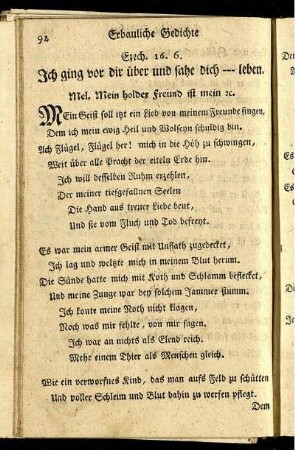 92 Erbauliche Gedichte
Ezech. 16. 6.
Ich ging vor dir über und sahe dich --- leben.
Mel. Mein holder Freund ist mein ꝛc.
MEin Geist soll itzt ein Lied von meinem Freunde singen,
Dem ich mein ewig Heil und Wolseyn schuldig bin.
Ach Flügel, Flügel her! mich in die Höh zu schwingen,
Weit über alle Pracht der eiteln Erde hin.
Ich will desselben Ruhm erzehlen,
Der meiner tiefgefallnen Seelen
Die Hand aus treuer Liebe beut,
Und sie vom Fluch und Tod befreyt.
Es war mein armer Geist mit Unflath zugedecket,
Ich lag und weltzte mich in meinem Blut herum.
Die Sünde hatte mich mit Koth und Schlamm beflecket,
Und meine Zunge war bey solchem Jammer stumm.
Ich konte meine Noth nicht klagen,
Noch was mir fehlte, von mir sagen.
Ich war an nichts als Elend reich,
Mehr einem Thier als Menschen gleich.
Wie ein verworfnes Kind, das man aufs Feld zu schütten
Und voller Schleim und Blut dahin zu werfen pflegt.
Dem